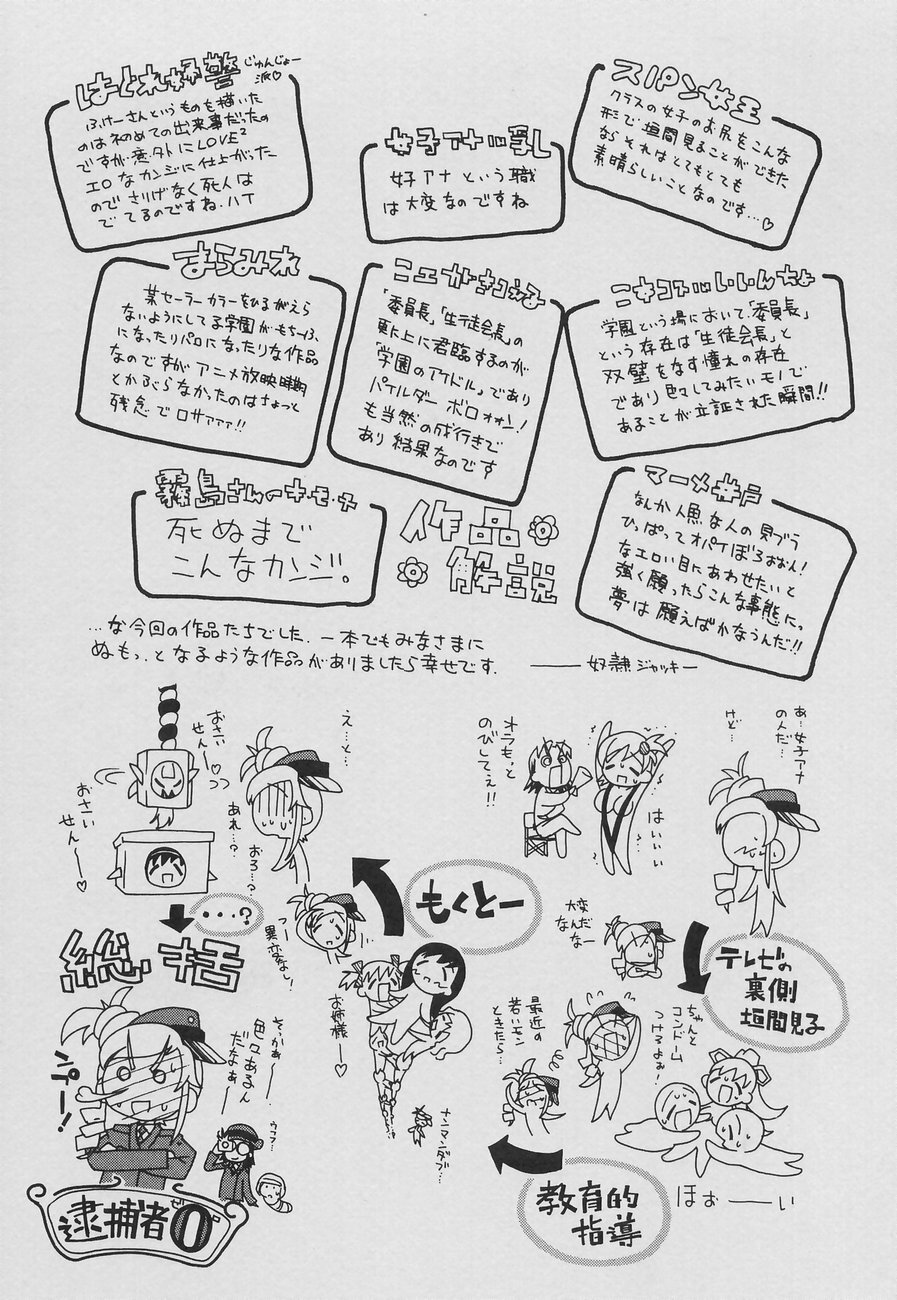 スパン女王
クラスの女子のお尻をこんな
形で垣間見ることができた
ならそれはとてもとても
素晴らしいことなのです…♡
女子アナ
女子アナという職
は大変なのですね
じゅんじょー
派♡
ふけーさんというものを描いた
のは初めての出来事だったの
ですが意外にLOVE²
エロなカンジに仕上がった
のでさりげなく死人は
でてるのですね.ハイ
学園という場において、「委員長」
という存在は「生徒会長」と
双璧をなす憧れの存在
であり色々してみたいモノで
あることが立証された瞬間!!
「委員長」「生徒会長」の
更に上に君臨するのが
「学園のアイドル」であり
パイルダー ボロォォン!
も当然の成行きで
あり結果なのです
まらみれ
某セーラーカラーをひるがえら
ないようにしてる学園がもちーふ
になったりパロになったりな作品
なのですがアニメ放映時期
とかぶらなかったのはちょっと
残念でロサァァァ!!
マーメ井戸
なんか人魚な人の貝ブラ
ひっぱってオパイぼろおおん!
なエロい目にあわせたいと
強く願ったらこんな事態に。
夢は願えばかなうんだ!!
作品
解説
霧島さんのキ・モ・チ
死ぬまで
こんなカンジ。
…な今回の作品たちでした.一本でもみなさまに
ぬもっ。となるような作品がありましたら幸せです.
奴隷ジャッキー
あ…女子アナ
のんだ…
けど…
オラもっと
のびしてぇ!!
はいぃぃ
テレビの
裏側
垣間見子
大変だ
なんなー
ちゃんと
コンドーム
つけるよぉ!
ほぉーーい
教育的
指導
最近の
若いモン
ときたら…
ナンマンダブ…
お姉様ー♡
異変なし!
もくとー
え…と…
あれ…?
おろ…?
おさい
せんー♡
おさい
せんー♡
…?
総括
そっかぁー
色々あるん
だなぁー
ウフフ…
逮捕者
ゼロ
0